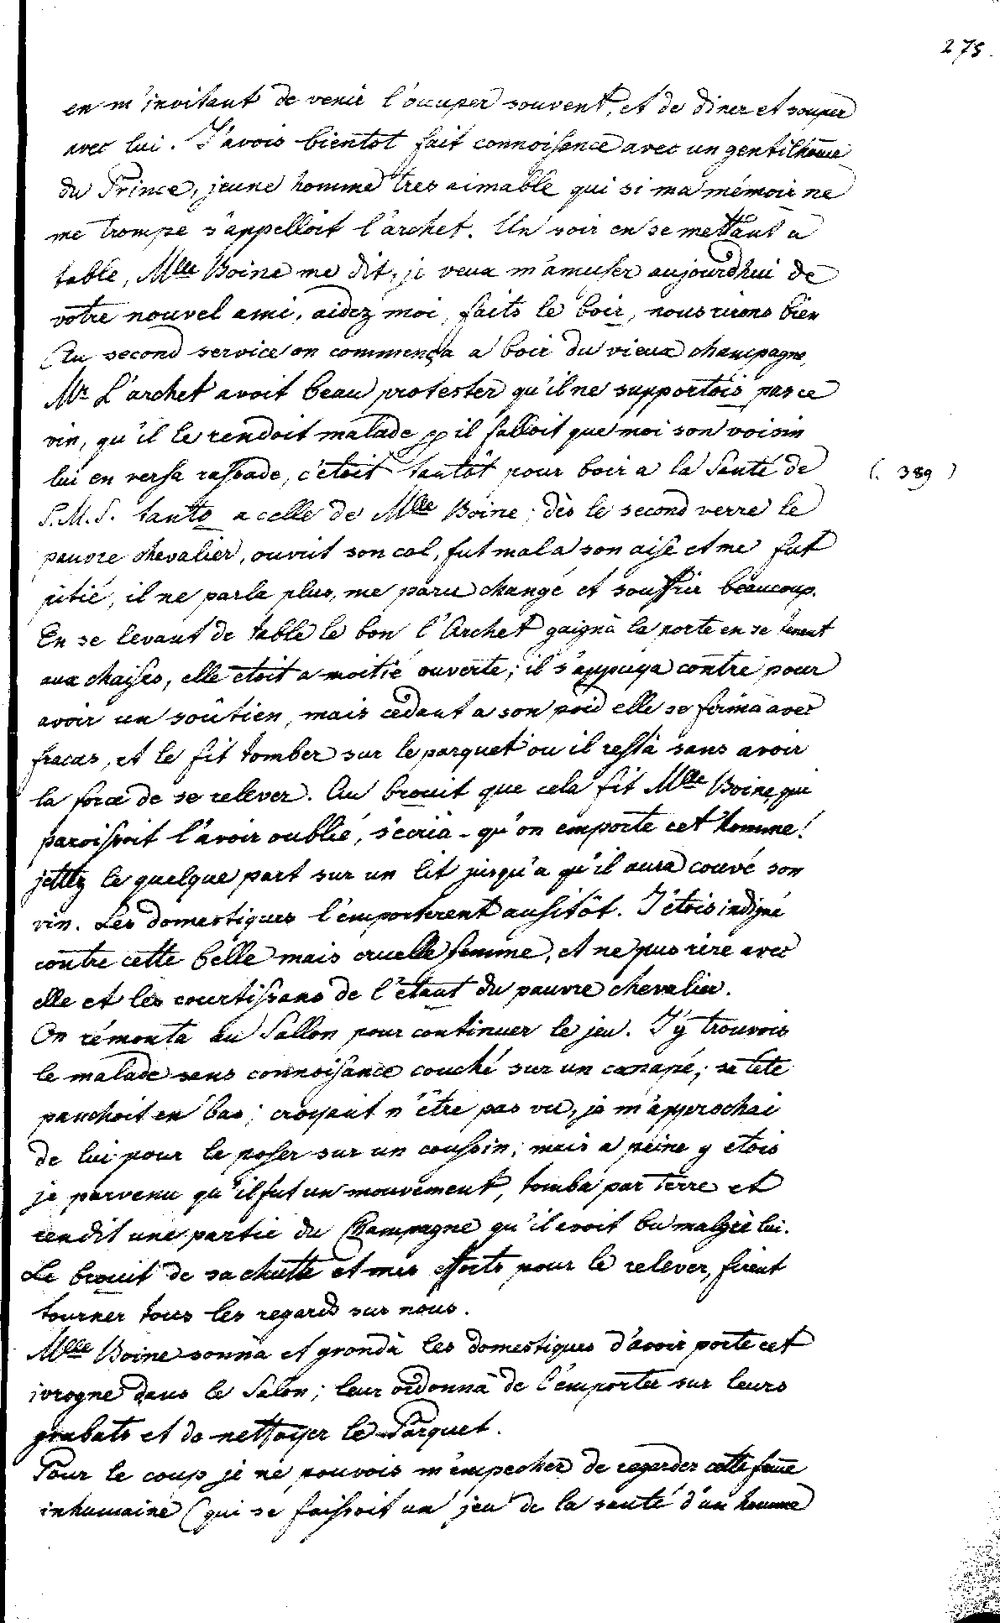 275.
en m'invitant de venir l'occuper souvent, et de diner et souper
avec lui. J'avois bientot fait connoissance avec un gentilhome
du Prince, jeune homme tres aimable qui si ma mémoir ne
me trompe s'appelloit l'archet. Un soir en se mettant a
table, Mlle Boine me dit, je veux m'amuser aujourdhui de
votre nouvel ami, aidez moi, faits le boir, nous rirons bien
Au second service on commença a boir du vieux champagne,
Mr L'archet avoit beau protester qu'il ne supportois pas ce
vin, qu'il le rendoit malade, il falloit que moi son voisin
lui en versa rassade, c'étoit tantôt pour boir a la santé de
S.M.S. tanto a celle de Mlle Boine; dès le second verre le
pauvre chevalier, ouvrit son col, fut mal a son aise et me fut
pitié, il ne parla plus, me paru changé et souffrir beaucoup.
En se levant de table le bon l'Archet gaignà la porte en se tenent
aux chaises, elle etoit a moitié ouverte; il s'appuya contre pour
avoir un soûtien, mais cedant a son poid elle se fermà avec
fracas, et le fit tomber sur le parquet ou il restà sans avoir
la force de se relever. Au brouit que cela fit Mlle Boine, qui
paroissoit l'avoir oublié, s'ecrià - qu'on emporte cet homme!
jettez le quelque part sur un lit jusqu'a qu'il aura couvé son
vin. Les domestiques l'emporterent ausitôt. J'étois indigné
contre cette belle mais cruelle femme, et ne pus rire avec
elle et les courtissans de l'étaut du pauvre chevalier.
On rémonta au Sallon pour continuer le jeu. J'y trouvois
le malade sens connoisance couché sur un canapé; sa tete
panchoit en bas; croyant n'être pas vu, je m'approchai
de lui pour le poser sur un coussin; mais a peine y etois
je parvenu qu'il fut un mouvement, tomba par terre et
rendit une partie du Champagne qu'il avoit bu malgrè lui.
Le brouit de sa chutte et mes efforts pour le relever, firent
tourner tous les regards sur nous.
Mlle Boine sonnà et grondà les domestiques d'avoir porte cet
ivrogne dans le Salon; leur ordonnà de l'emporter sur leurs
grabats et de nettoyer le Parquet.
Pour le coup je ne pouvois m'empecher de regarder cette feme
inhumaine (qui se faissoit un jeu de la santé d'un homme
(. 389)